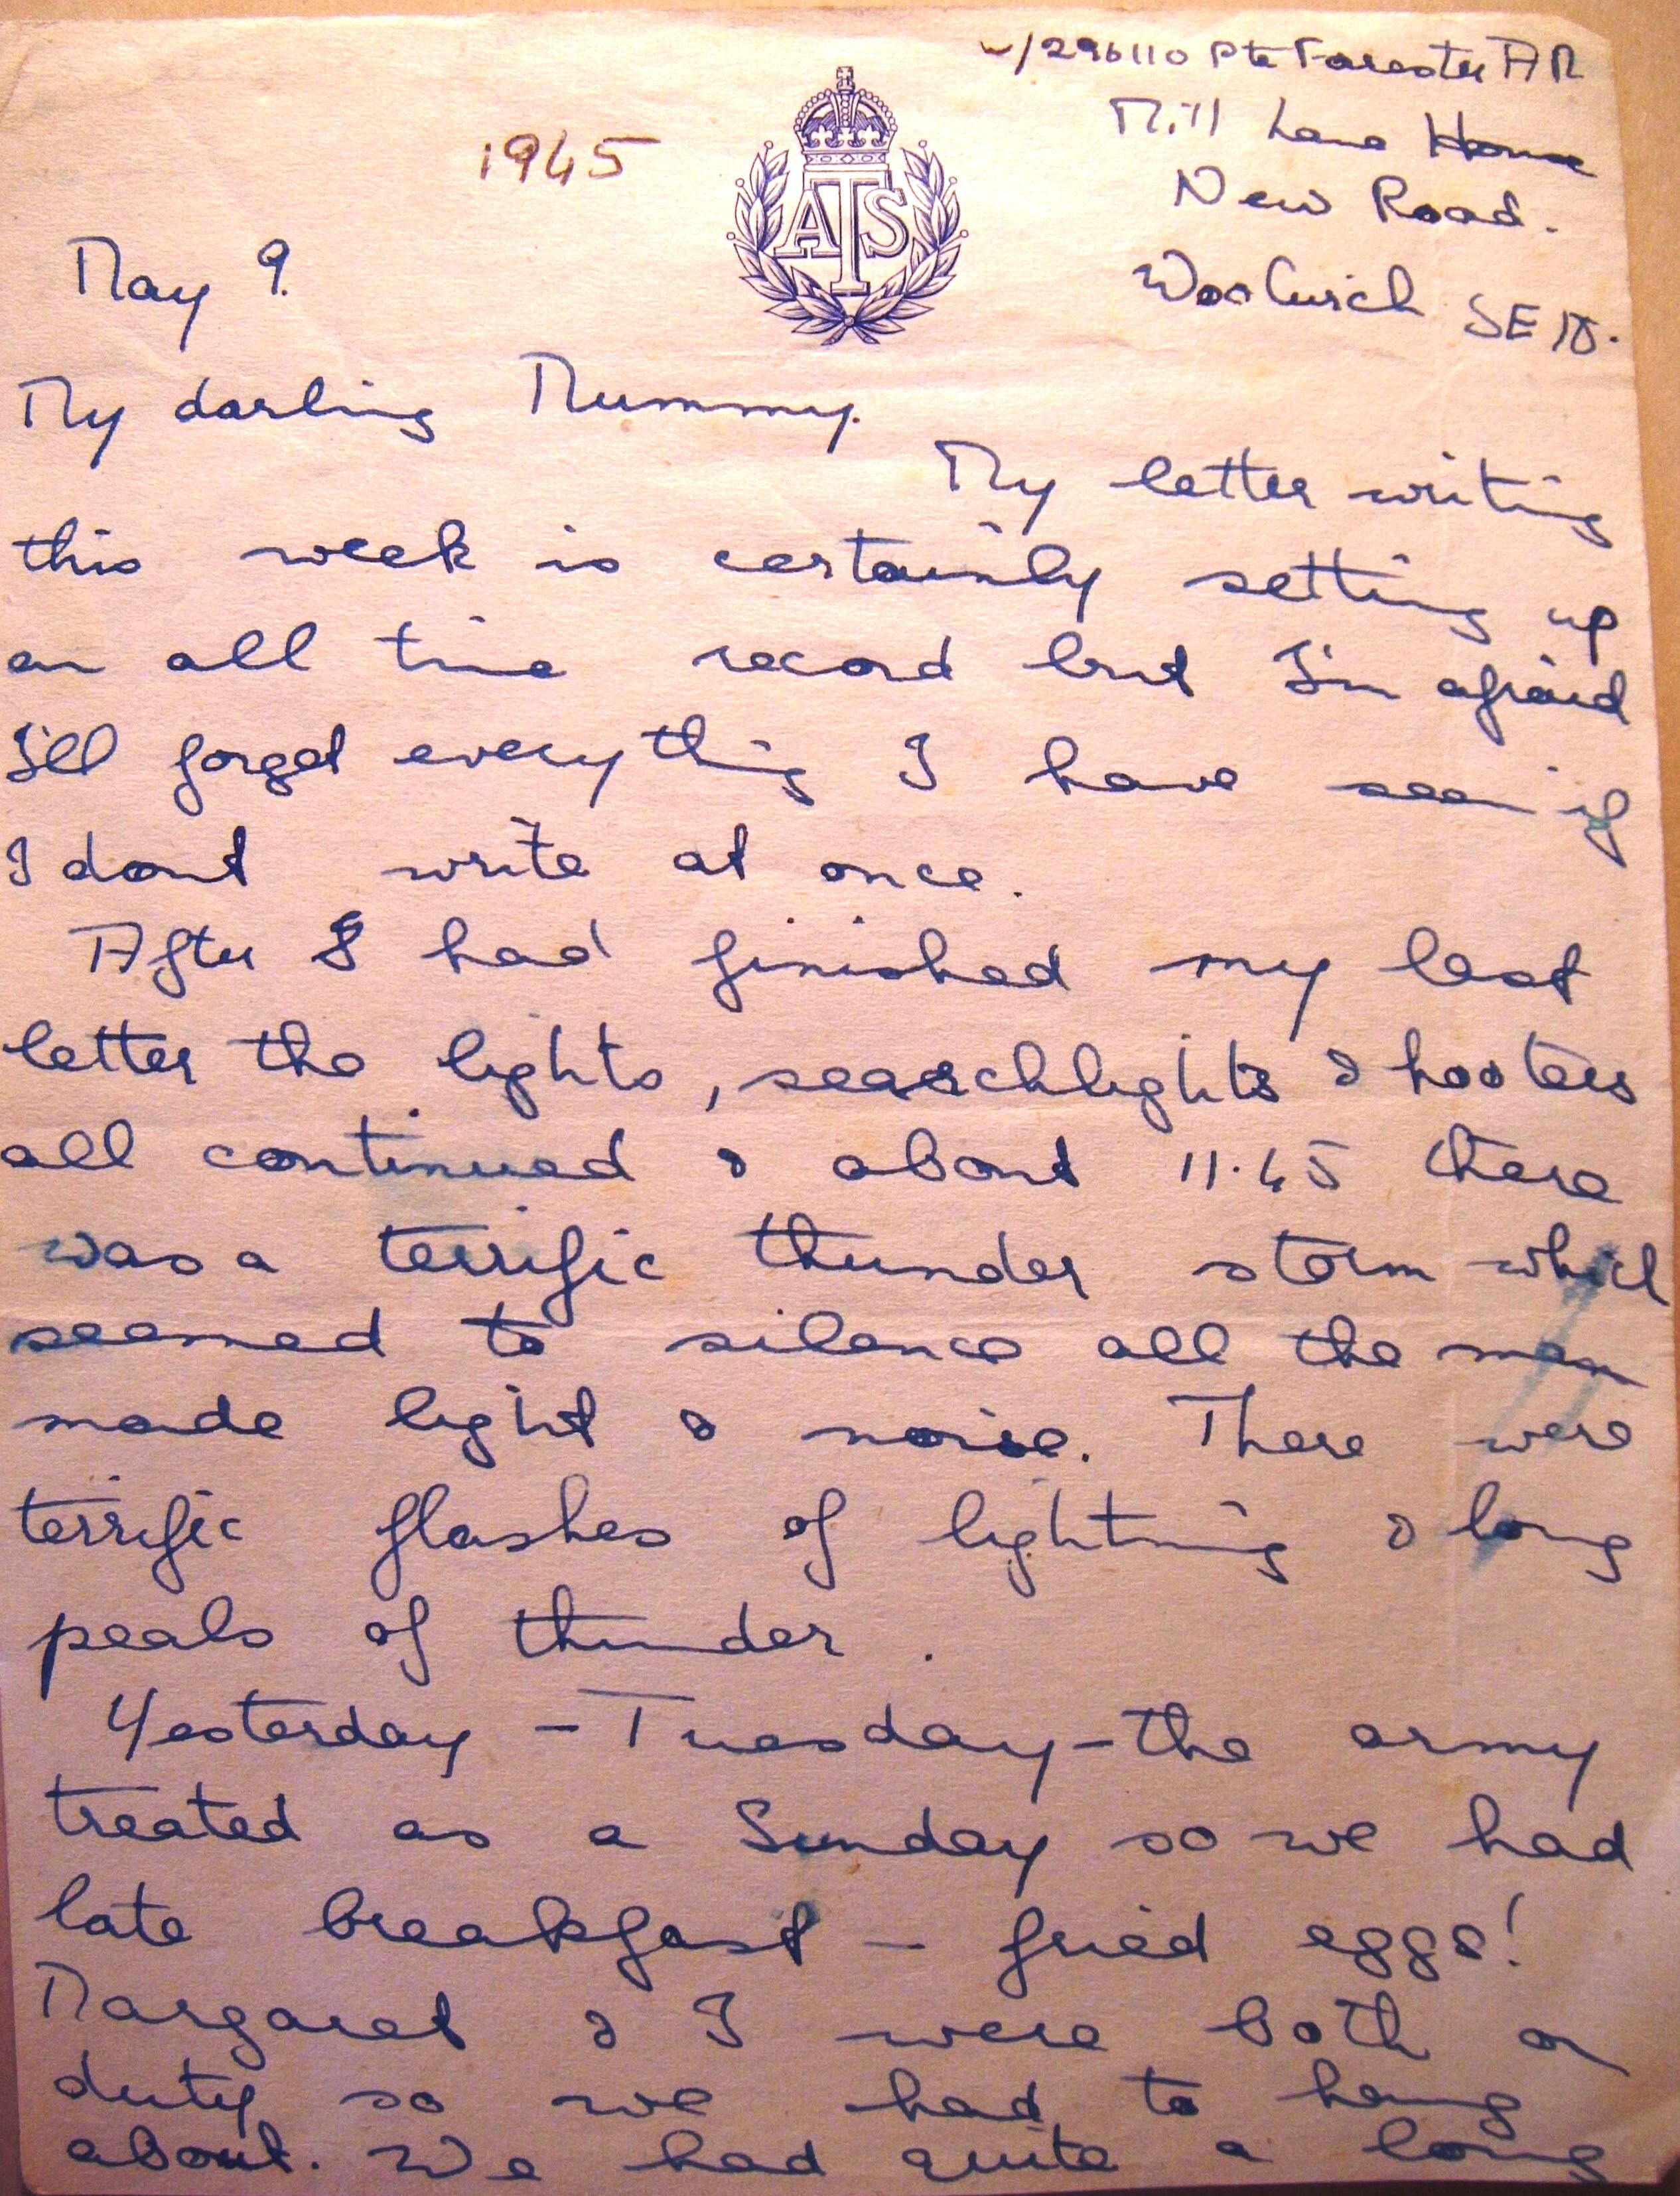 W/296110 Pte Forester A M
Mill Lane House
New Road.
Woolwich SE 18.
1945
ATS
May 9.
My darling Mummy.
My letter writing
this week is certainly setting up
an all time record but I'm afraid
I'll forget everything I have seen if
I dont write at once.
After I had finished my last
letter the lights, searchlights & hooters
all continued & about 11.45 there
was a terrific thunder storm which
seemed to silence all the man
made light & noise. There were
terrific flashes of lightning & long
peals of thunder.
Yesterday - Tuesday - the army
treated as a Sunday so we had
late breakfast - fried eggs!
Margaret & I were both on
duty so we had to hang
about. We had quite a long